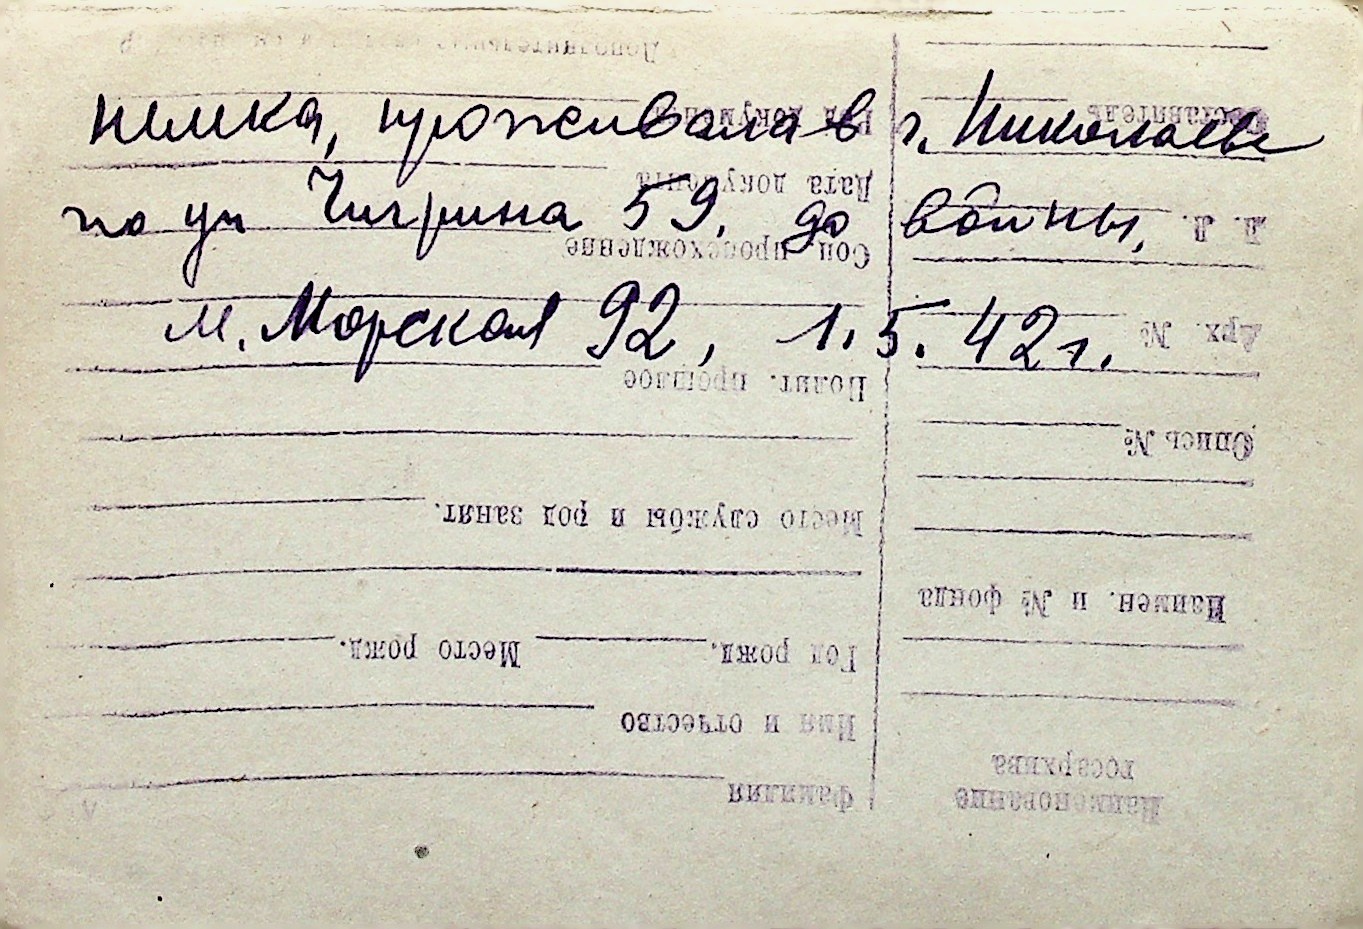 немка, проживала в г. Николаеве
по ул Чигрина 59, до войны,
М. Морская 92, 1.5.42г.
Наименование
госархива
Фамилия
Имя и отчество
Наимен. и № фонда
Год рожд. Место рожд.
Опись №
Место службы и род занят.
Арх. №
Полит. прошлое
Л. Л.
Соц происхождение
Дата документа
Составитель
Вид документа